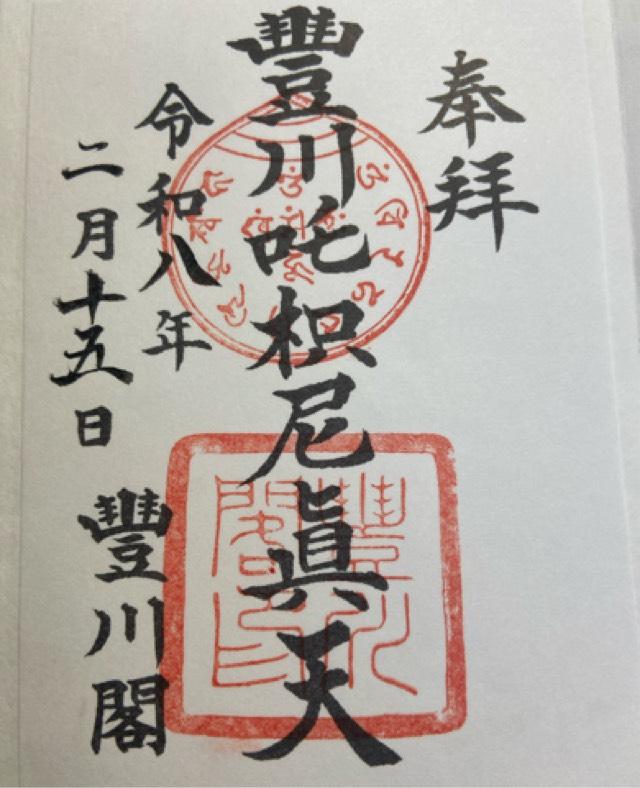 奉拜
豐川吒枳尼眞天
令和八年
二月十五日
豐川閣
豐川閣印